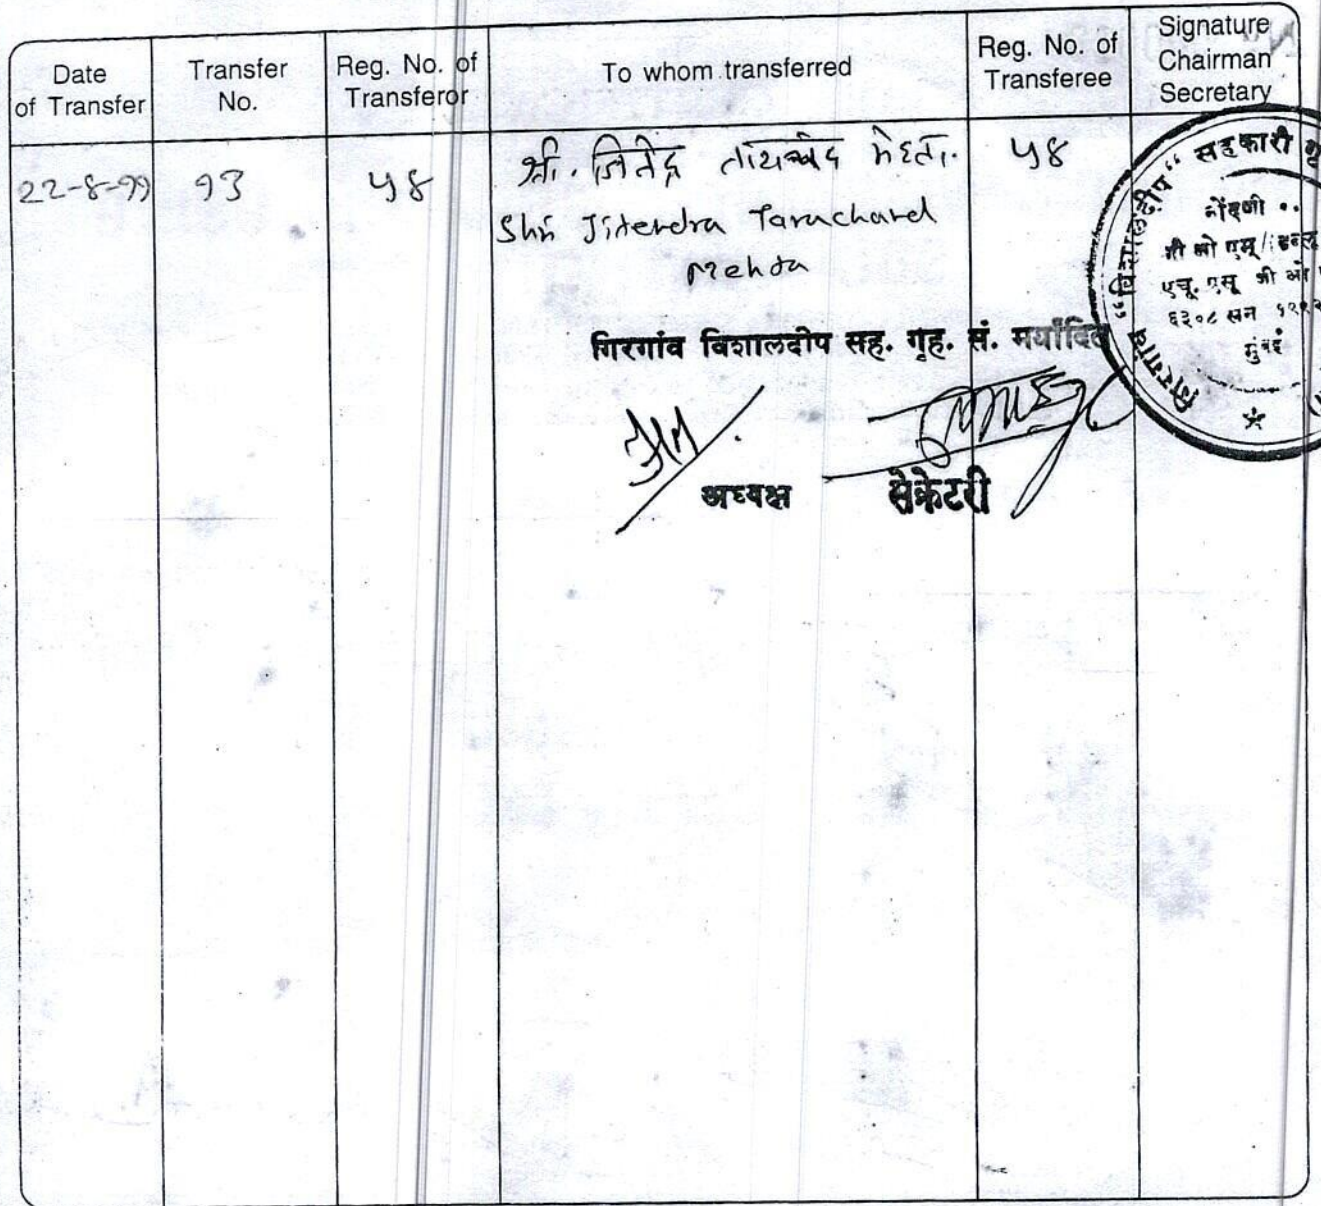 Date of Transfer
Transfer No.
Reg. No. of Transferor
To whom transferred
Reg. No. of Transferee
Signature Chairman Secretary
२२-४-११ १३ ५४ श्री. जितेंद्र ताराचंद मेहता. ५४
Shri Jitendra Tarachand
Mehta
गिरगांव विशालदीप सह. गृह. सं. मर्यादित
अध्यक्ष सेक्रेटरी
गिरगांव "विशालदीप" सहकारी
नोंदणी
बी ओ एम्/डब्लू
एच्. एस् जी ओ
६३०८ सन
मुंबई